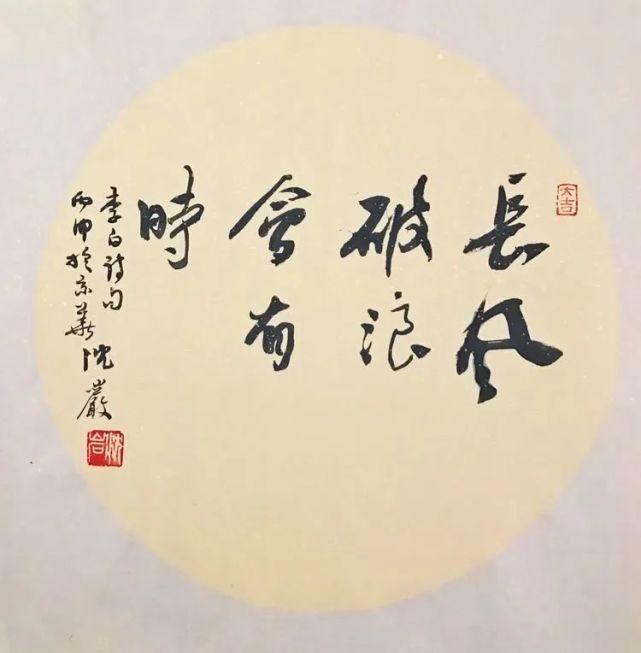 大吉
長風
破浪
會有
時
李白詩句
丙申於京華沈巖